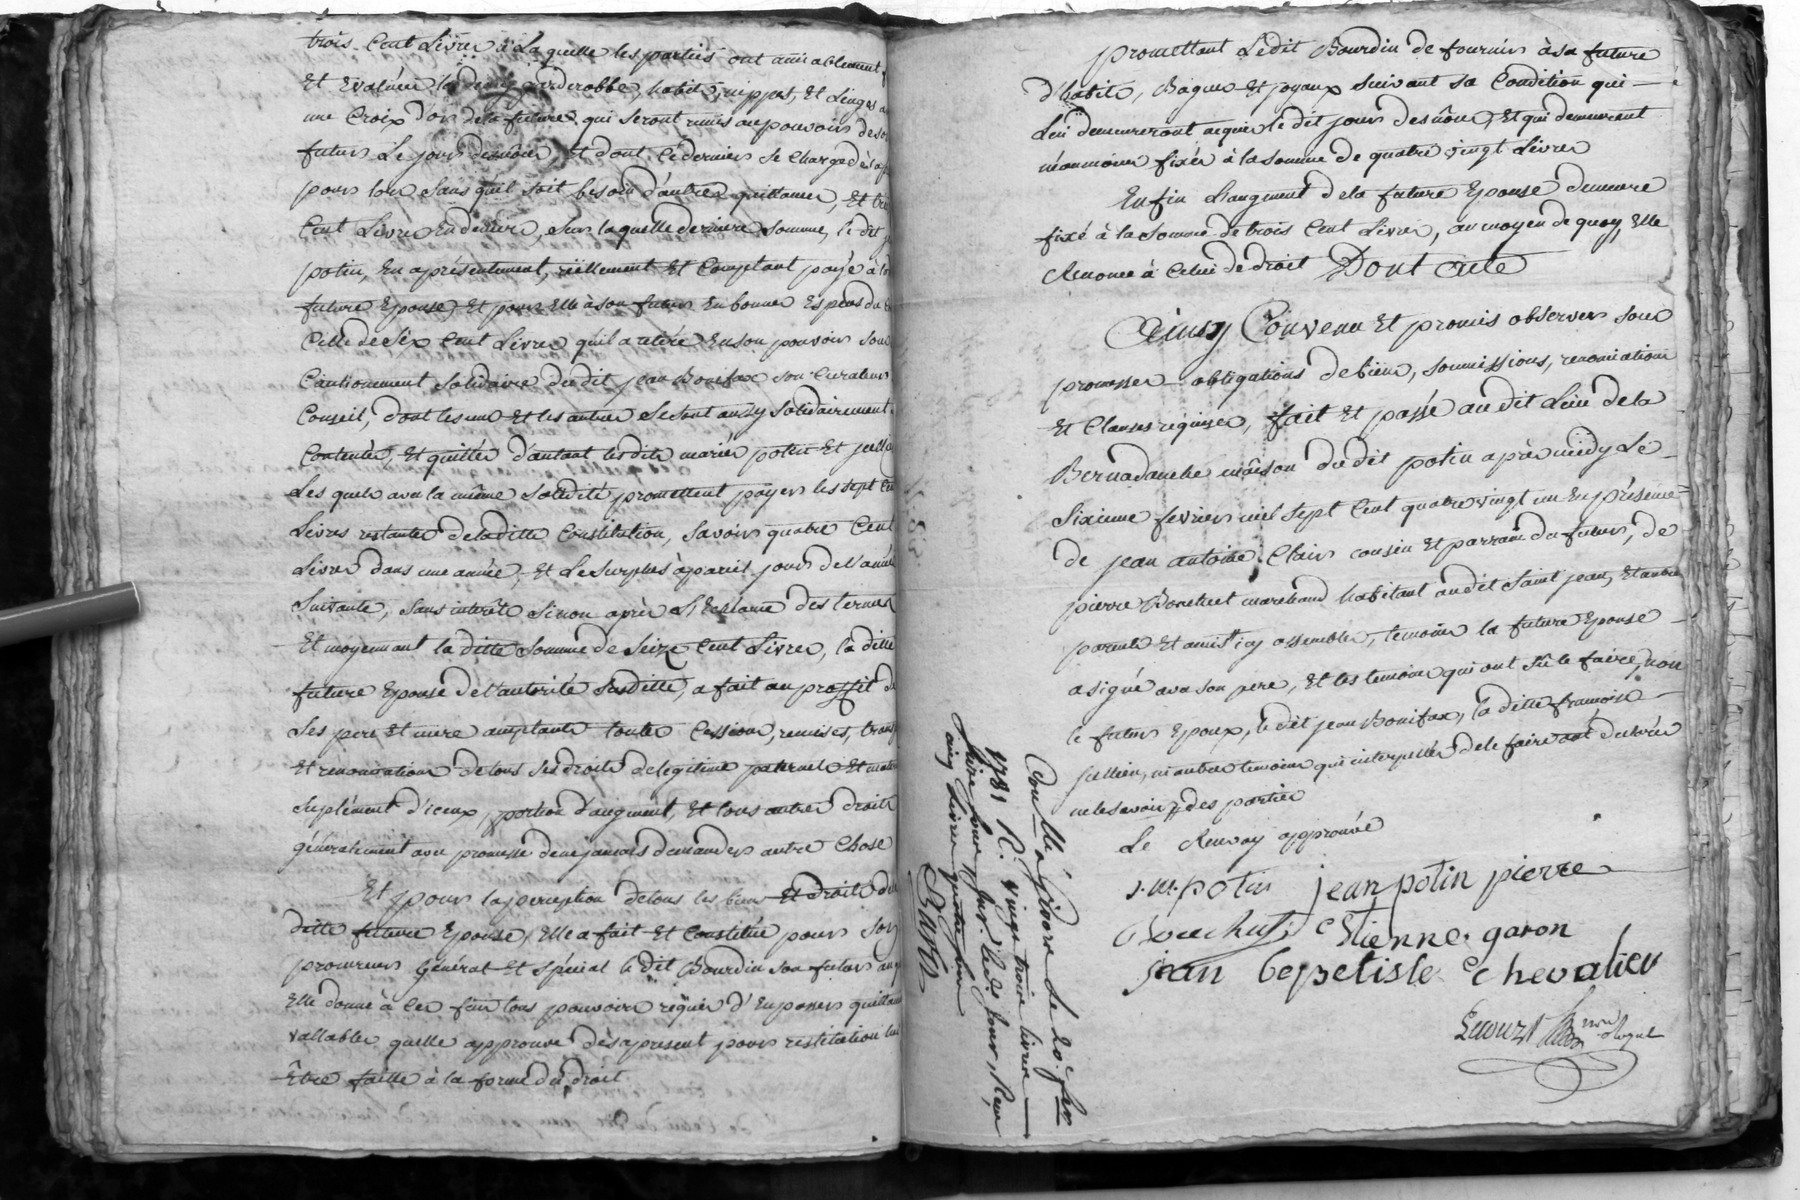 trois Cent Livres à La quelle les parties ont amiablement
Et Evalüées garderobbe, habits, nippes, Et Linges
une Croix d'or dela future, qui seront remis au pouvoir de
futur Le jour des nôces, Et dont Cedernier se Charge dès
pour lors sans qu'il soit besoin d'autre quittance, Et
Cent Livres En deniers, sur laquelle derniere somme, le dit
potin, En a présentement, réèllement Et Comptant payé à
future Epouse, Et pour Elle à son futur En bonnes Espèces du
Celle de Six Cent Livres qu'il a retiré En son pouvoir sous
Cautionement solidaire dudit jean Bonifax son Curateur
Conseil, dont les uns Et les autres se sont aussy solidairement
Contentés, Et quittés d'autant lesdits mariés potin Et jullien
Les quels avec la même solidité promettent payer les sept Cent
Livres restantes de laditte Constitution, savoir quatre Cent
Livres dans une année, Et Le surplus à pareil jour de l'année
suivante, sans interêts sinon après L'Echéance des termes
Et moyennant la ditte somme de Seize Cent Livres, la ditte
future Epouse de l'autorité susditte, a fait au proffit de
ses pere Et mere amplante toutes Cessions, remises,
Et renonciations de tous ses droits de legitime paternels Et
suplément d'iceux, portion d'augment, Et tous autres droits
généralement avec promesse de ne jamais demander autre Chose
Et pour la perception de tous les biens Et droits de
ditte future Epouse, Elle a fait Et Constitué pour son
procureur Général Et spécial le dit Bourdin son futur
Elle donne à Ces fins tous pouvoirs requis d'En passer quittance
vallables quelle approuve dès apresent pour restitution
Être faitte à la forme du droit.
promettant Ledit Bourdin de fournir à sa future
d'habits, Bagues Et joyaux suivant sa Condition qui
Lui demeureront acquis le dit jour des nôces, Et qui demeurent
néanmoins fixés à la somme de quatre vingt Livres
Enfin L'augment dela future Epouse demeure
fixé à la somme de trois Cent Livres, au moyen de quoy Elle
Renonce à Celui de droit Dont acte
Ainsy Convenu Et promis observer sous
promesses obligations de biens, soumissions, renonciations
Et Clauses requises, fait Et passé au dit Lieu de la
Bernadanche maison dudit potin après midy Le
Sixieme fevrier mil sept Cent quatre vingt un En présence
de jean antoine Clair cousin Et parrain du futur, de
pierre Bouchut marchand habitant au dit saint jean, Et autres
parents Et amis icy assemblés, temoins la future Epouse
a signé avec son pere, Et les temoins qui ont sû le faire, non
le futur Epoux, le dit jean Bonifax, la ditte françoise
jullien, ni autres temoins qui interpellés de le faire ont declarés
ne le savoir des parties
Le Renvoy approuvé
j. m. potin jean potin pierre
Bouchut Etienne garon
jean bapetiste chevalier
Coullé à Givors Le 20e fer
1781 R. vingt trois livres
cinq livres quatre sous